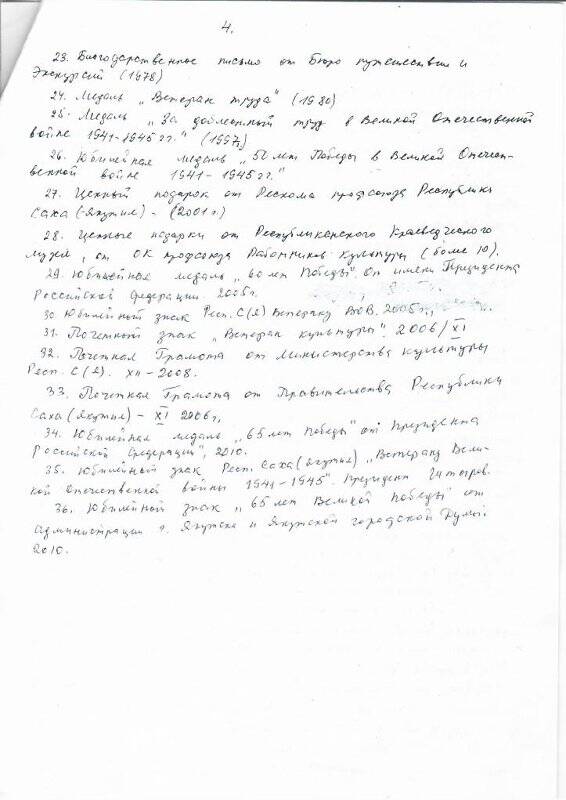 4.
23. Благодарственное письмо от Бюро путешествии и
Экскурсий (1978)
24. Медаль „Ветеран труда" (1980)
25. Медаль „За доблестный труд в Великой Отечественной
войне 1941-1945 гг." (1997)
26. Юбилейная медаль „50 лет Победы в Великой Отечест-
венной войне 1941-1945 гг."
27. Ценный подарок от Рескома профсоюза Республики
Саха (Якутия) - (2001 г.)
28. Ценные подарки от Республиканского Краеведческого
музея, от ОК профсоюза Работников культуры (более 10).
29. Юбилейная медаль „60 лет Победы". От имени Президента
Российской Федерации 2005 г.
30. Юбилейный знак Респ. С(Я) Ветерану ВОВ. 2005 г.,
31. Почетный знак „Ветеран культуры". 2006/XI
32. Почетная Грамота от министерства культуры
Респ. С(Я). XII - 2008.
33. Почетная Грамота от Правительства Республики
Саха (Якутия) - XI 2006 г,
34. Юбилейная медаль „65 лет Победы" от Президента
Российской Федерации", 2010.
35. Юбилейный знак Респ. Саха (Якутия) „Ветерану Вели-
кой Отечественной войны 1941-1945". Президент Штыров.
36. Юбилейный знак „65 лет Великой Победы" от
администрации г. Якутска и Якутской городской Думы.
2010.